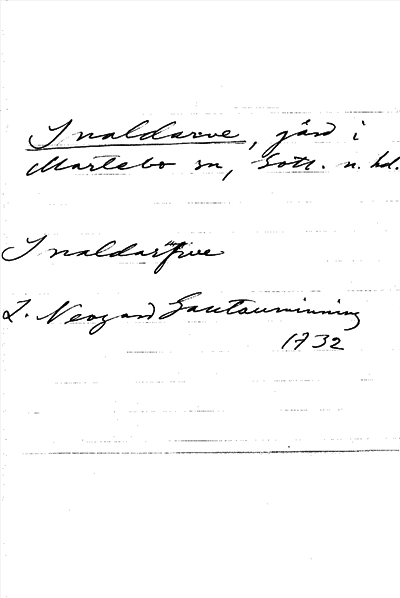 Snaldarve, gård i
Martebo sn, Gotl. n. hd.
Snaldarfwe
L. Neogard Gautauminning
1732